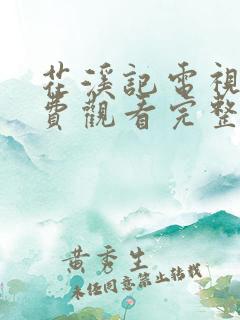 茌溪記電視
費觀看完整
黃秀生
未经同意禁止转载